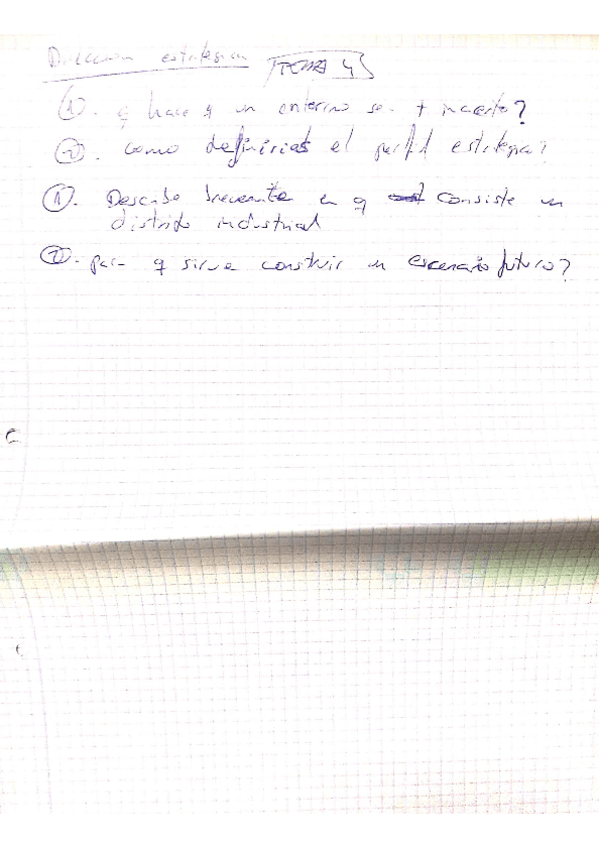 Direccion estrategica TEMA 4
1). q hace q un entorno sea + incierto?
2). como definirias el perfil estrategico?
1). Describe brevemente en q consiste un
distrito industrial
2). para q sirve construir un escenario futuro?